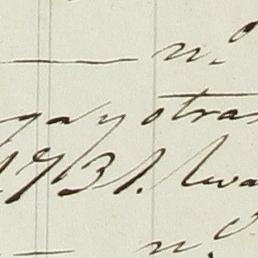 — n.º
ga y otras
1731.
— n.º